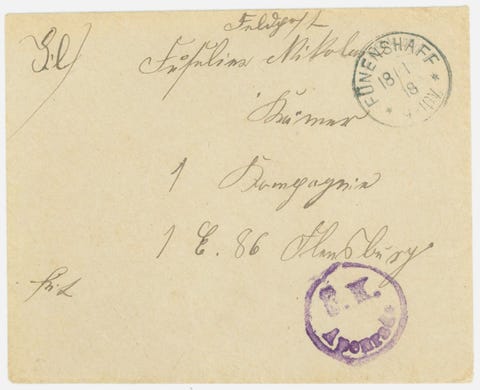 Feldpost
Füsilier Nikolai
Krämer
1 Kompagnie
1 E. 86 Flensburg
FÜNENSHAFF
18/1
18
Apenrade